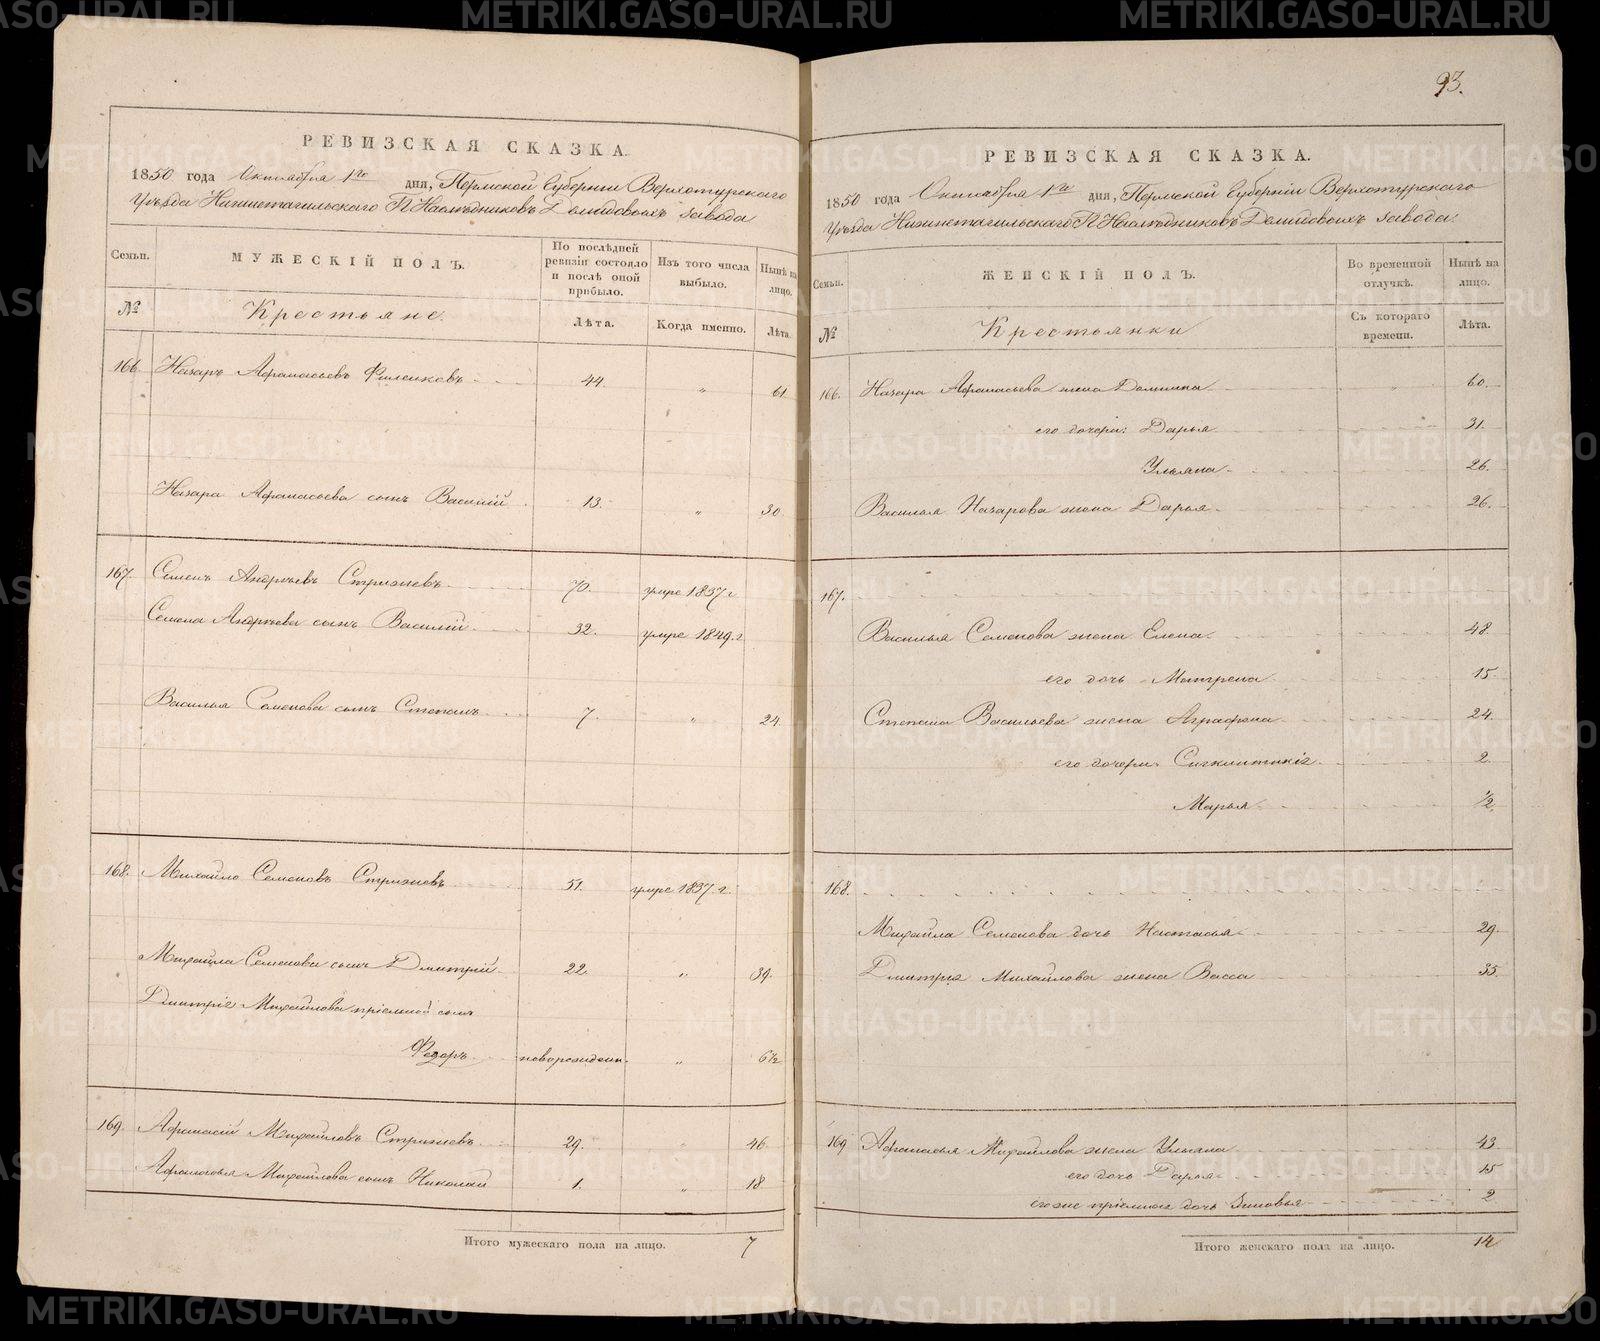 93.
РЕВИЗСКАЯ СКАЗКА.
1850 года Октября 1го дня, Пермской Губерніи Верхотурскаго
Уѣзда Нижнетагильскаго Г.г. Наслѣдниковъ Демидовыхъ завода
Семьи.
МУЖЕСКІЙ ПОЛЪ.
По послѣдней ревизіи состояло и послѣ оной прибыло.
Изъ того числа выбыло.
Нынѣ на лицо.
№
Крестьяне.
Лѣта.
Когда именно.
Лѣта.
166. Назаръ Афанасьевъ 44. " 61.
Назара Афанасьева сынъ Василій 13. " 30
167. Семенъ Андреевъ Стрижевъ 70. умре 1837 г
Семена Андреева сынъ Василій 32. умре 1849. г
Василья Семенова сынъ Степанъ 7. " 24.
168. Михайло Семеновъ Стрижевъ 51. умре 1837 г.
Михайла Семенова сынъ Дмитрій 22. " 39.
Дмитрія Михайлова пріемной сынъ
Федоръ новорожден. " 6½
169. Афанасій Михайловъ Стрижевъ 29. " 46.
Афанасья Михайлова сынъ Николай 1. " 18
Итого мужескаго пола на лицо. 7
РЕВИЗСКАЯ СКАЗКА.
1850 года Октября 1го дня, Пермской Губерніи Верхотурскаго
Уѣзда Нижнетагильскаго Г.г. Наслѣдниковъ Демидовыхъ завода.
Семьи.
ЖЕНСКІЙ ПОЛЪ.
Во временной отлучкѣ.
Нынѣ на лицо.
№
Крестьянки
Съ котораго времени.
Лѣта.
166. Назара Афанасьева жена Домника 60.
его дочери: Дарья 31.
Ульяна 26.
Василья Назарова жена Дарья 26.
167.
Василья Семенова жена Елена 48
его дочь Матрена 15
Степана Васильева жена Аграфена 24.
его дочери: Сигклитикія 2.
Марья ½
168.
Михайла Семенова дочь Настасья 29.
Дмитрія Михайлова жена Васса 35.
169 Афанасья Михайлова жена Ульяна 43
его дочь Дарья 15
его же пріемная дочь Зиновья 2
Итого женскаго пола на лицо. 14
METRIKI.GASO-URAL.RU